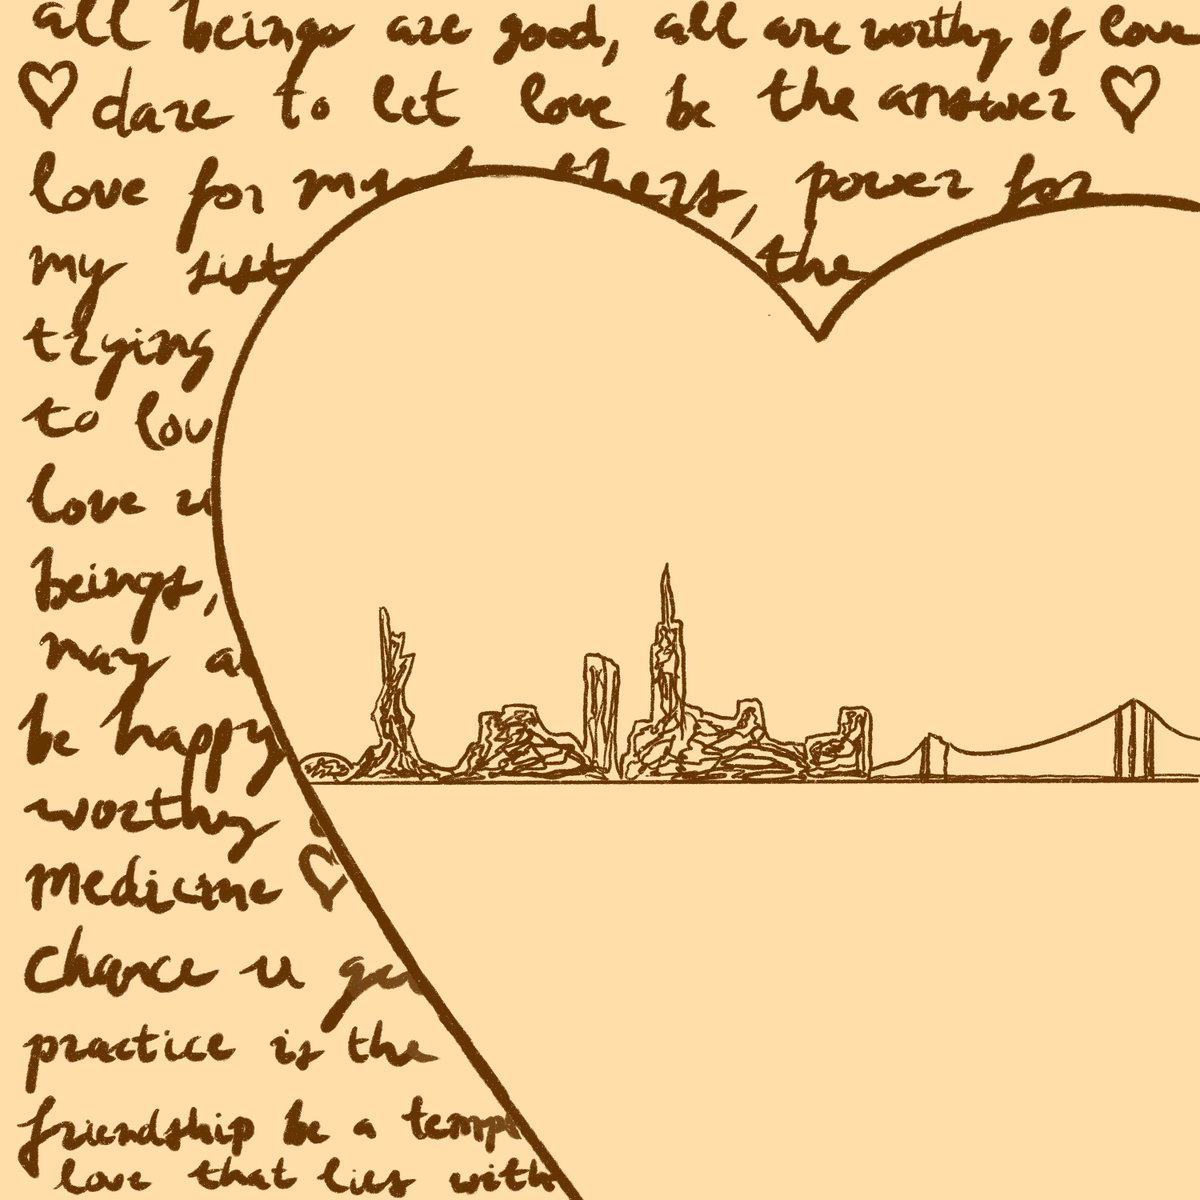 all beings are good, all are worthy of love
dare to let love be the answer
love for my, power for
my
trying
to
love u
beings,
may
be happy
worthy
medicine
chance u
practice is the
friendship be a
love that lies